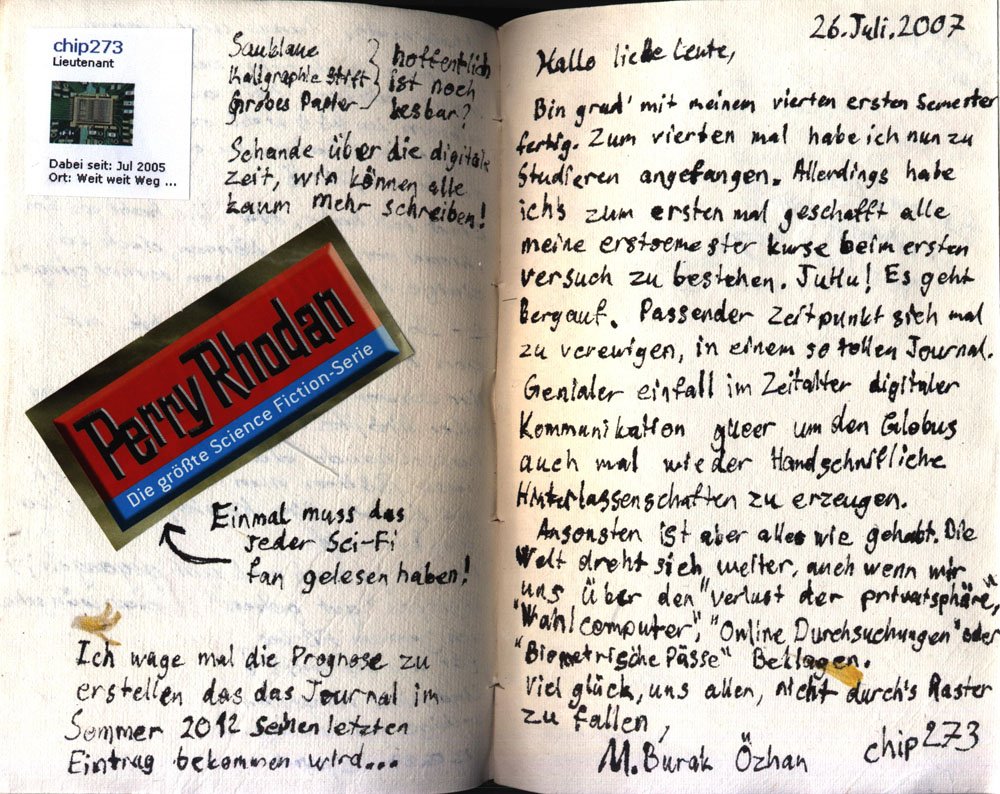 chip273
Lieutenant
Dabei seit: Jul 2005
Ort: Weit weit Weg ...
Sauklaue
Kallgraphie Stift
Grobes Papier
hoffentlich
ist noch
lesbar?
Schande über die digitale
Zeit, wir können alle
kaum mehr schreiben!
Perry Rhodan
Die größte Science Fiction-Serie
Einmal muss das
jeder Sci-Fi
fan gelesen haben!
Ich wage mal die Prognose zu
erstellen das das Journal im
Sommer 2012 seinen letzten
Eintrag bekommen wird...
26.Juli.2007
Hallo liebe Leute,
Bin grad' mit meinem vierten ersten Semester
fertig. Zum vierten mal habe ich nun zu
Studieren angefangen. Allerdings habe
ich's zum ersten mal geschafft alle
meine erstsemester kurse beim ersten
versuch zu bestehen. JuHu! Es geht
Bergauf. Passender Zeitpunkt sich mal
zu verewigen, in einem so tollen Journal.
Genialer einfall im Zeitalter digitaler
Kommunikation queer um den Globus
auch mal wieder Handschriftliche
Hinterlassenschaften zu erzeugen.
Ansonsten ist aber alles wie gehabt. Die
Welt dreht sich weiter, auch wenn wir
uns über den "verlust der privatsphäre",
"Wahlcomputer", "Online Durchsuchungen" oder
"Biometrische Pässe" Beklagen.
Viel glück, uns allen, nicht durch's Raster
zu fallen,
M.Burak Özhan
chip273